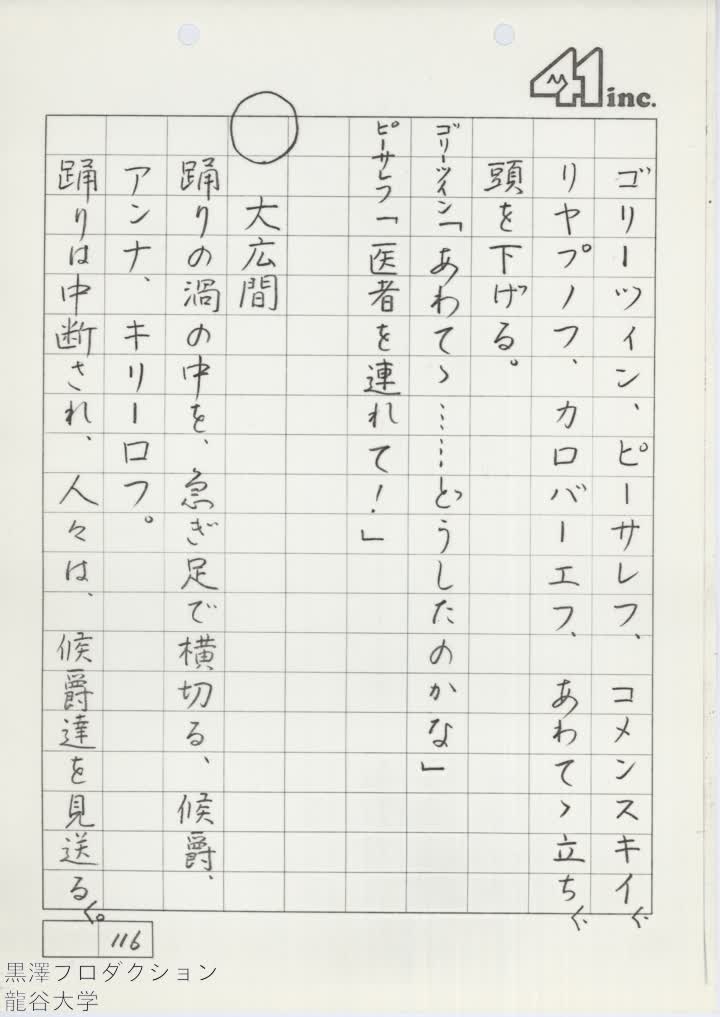 41 inc.
ゴリーツィン、ピーサレフ、コメンスキイ
リヤプノフ、カロバーエフ、あわてゝ立ち
頭を下げる。
ゴリーツィン「あわてゝ……どうしたのかな」
ピーサレフ「医者を連れて！」
大広間
踊りの渦の中を、急ぎ足で横切る、候爵、
アンナ、キリーロフ。
踊りは中断され、人々は、候爵達を見送る。
116
黒澤プロダクション
龍谷大学